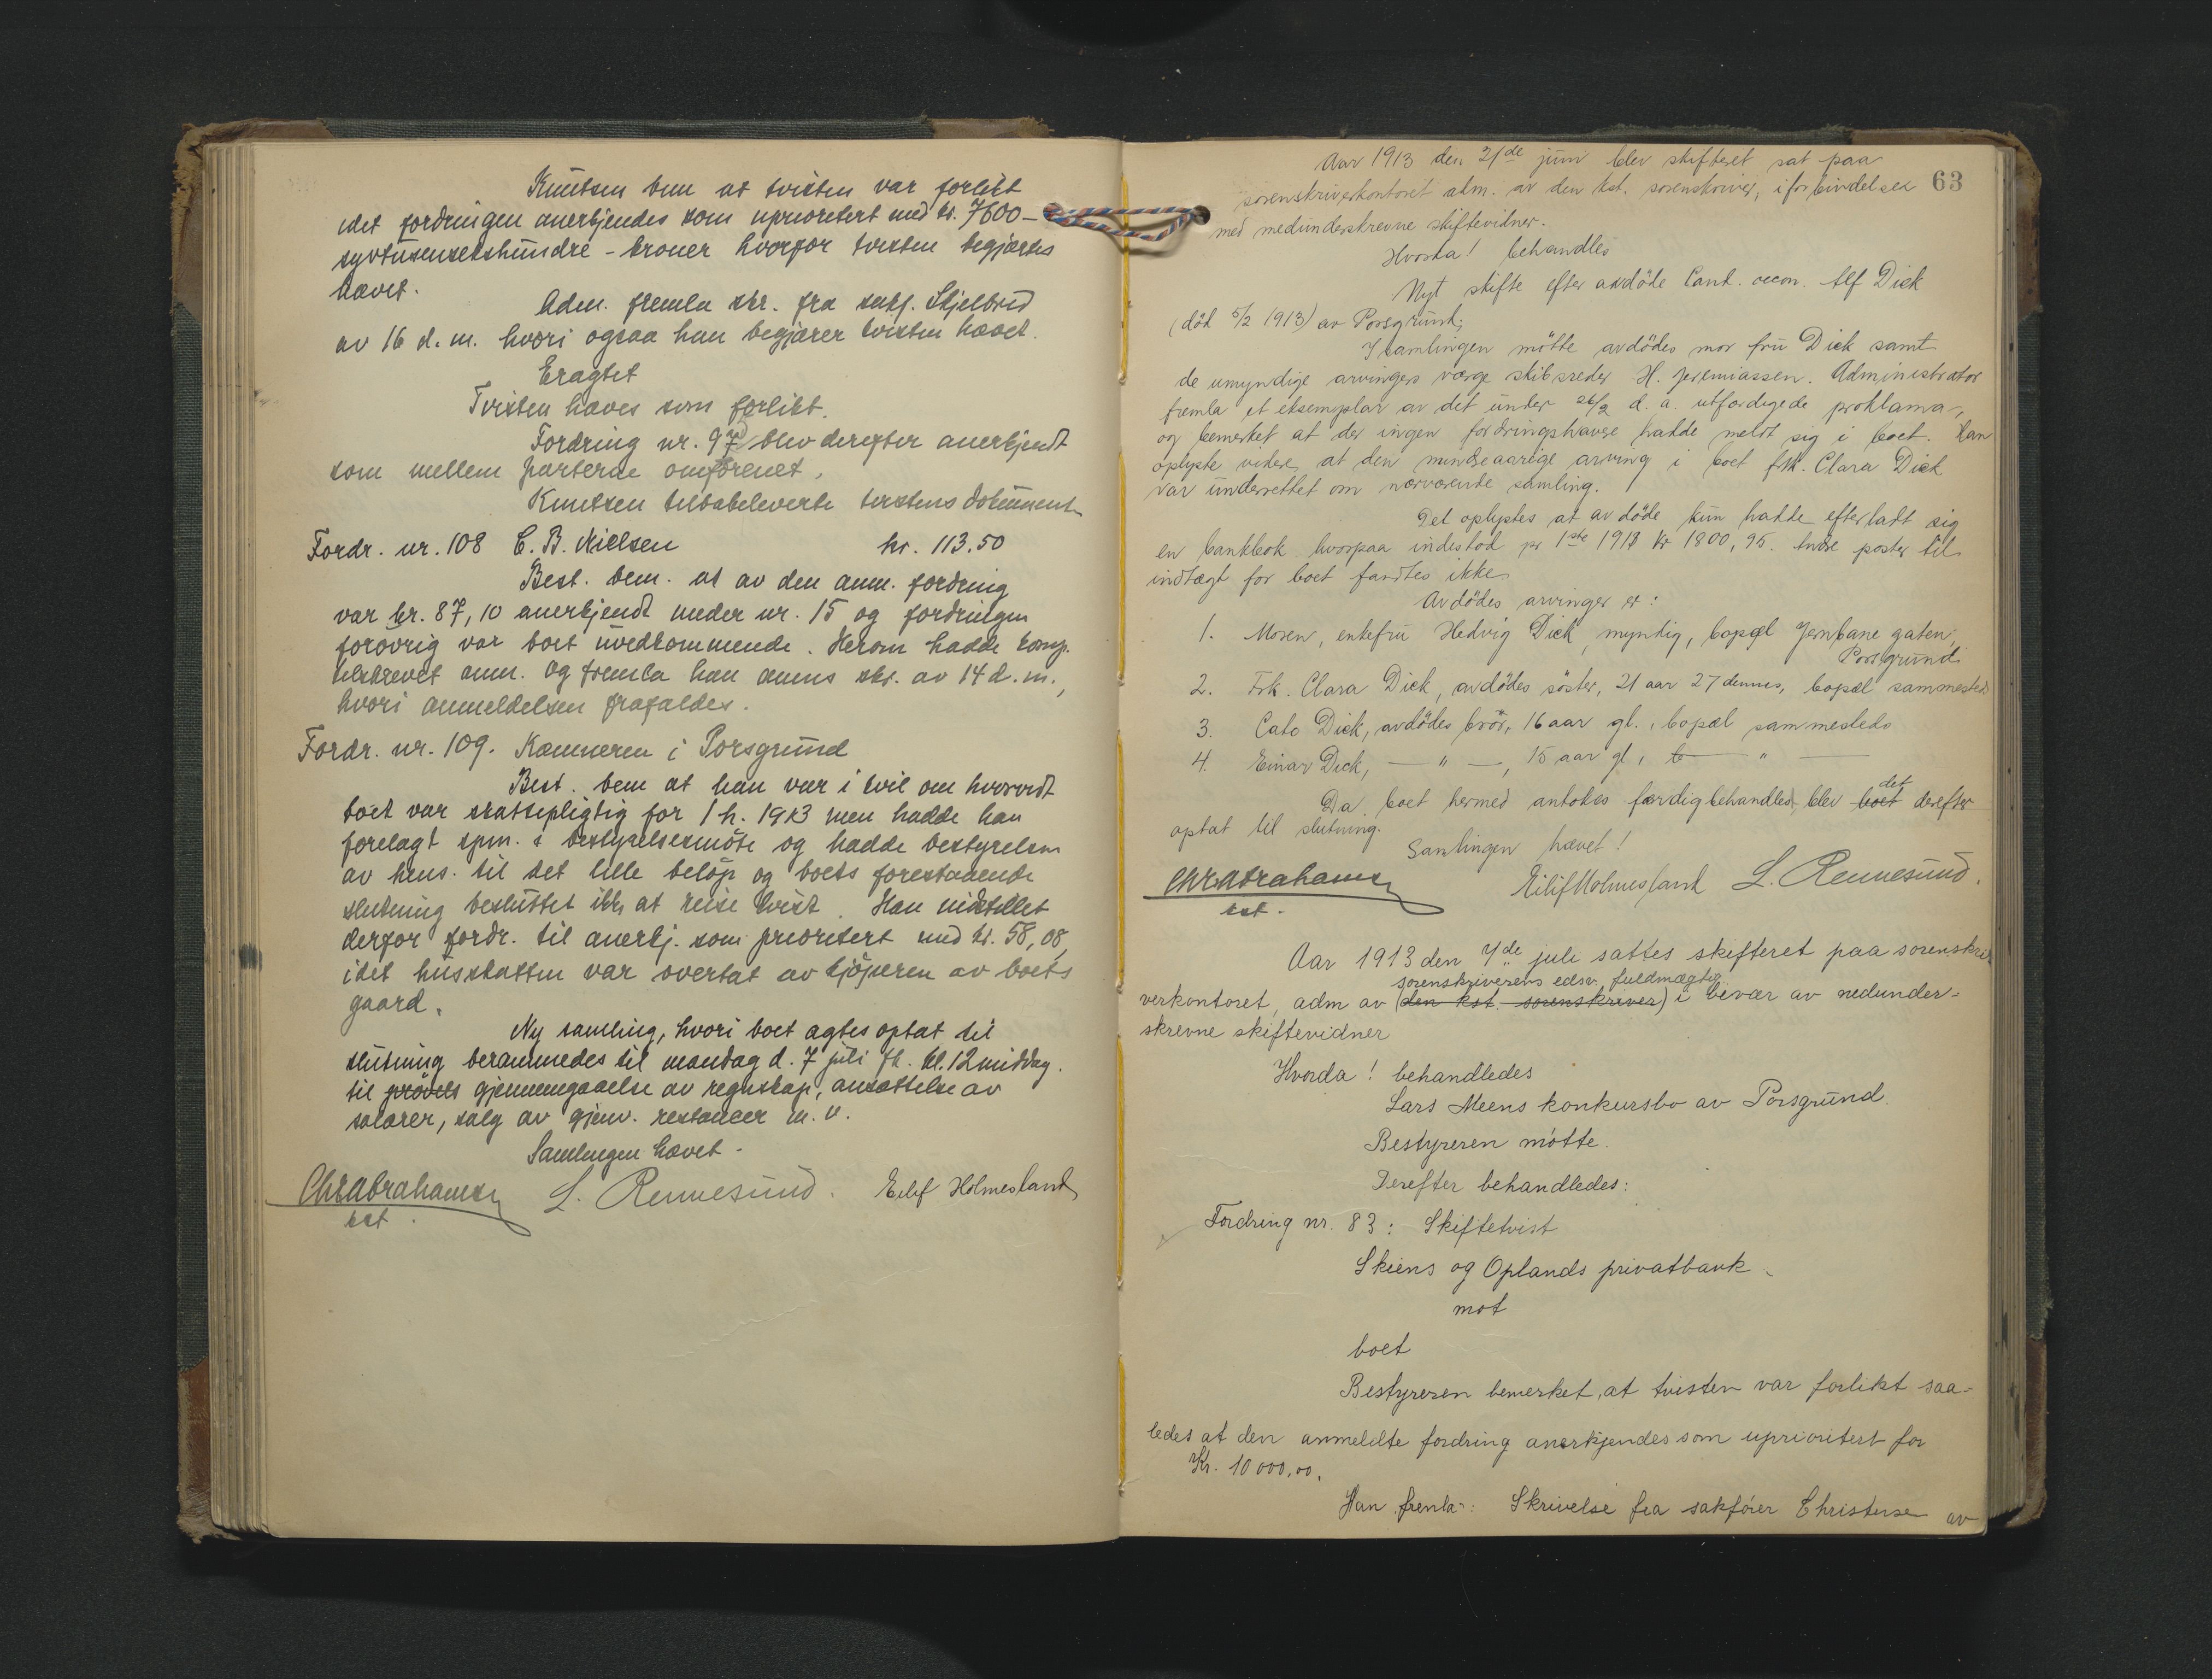 Knutsen bem at tvisten var forlikt
idet fordringen anerkjendes som uprioritert med kr. 7600 –
syvtusensekshundre – kroner hvorfor tvisten begjæres
hævet.
Adm. fremla skr. fra sakf. Skjelbred
av 16 d. m. hvori ogsaa han begjærer tvisten hævet.
Eragtet
Tvisten hæves som forlikt.
Fordring nr. 97 blev derefter anerkjendt
som mellem parterne omforenet.
Knutsen tilbakeleverte tvistens dokument
Fordr. nr. 108 C. B. Nielsen kr. 113.50
Best. bem. at av den anm. fordring
var kr. 87,10 anerkjendt under nr. 15 og fordringen
forøvrig var boet uvedkommende. Herom hadde komp.
tilskrevet anm. og fremla han anms skr. av 14 d. m.,
hvori anmeldelsen frafaldes.
Fordr. nr. 109. Kæmneren i Porsgrund
Best. bem at han var i tvil om hvorvidt
boet var skattepligtig for 1 h. 1913 men hadde han
forelagt spm. i bestyrelsesmøte og hadde bestyrelsen
av hens. til det lille beløp og boets forestaaende
slutning besluttet ikke at reise tvist. Han indstillet
derfor fordr. til anerkj. som prioritert med kr. 58,08,
idet husskatten var overtat av kjøperen av boets
gaard.
Ny samling, hvori boet agtes optat til
slutning berammedes til mandag d. 7 juli fk. kl. 12 middag.
til prøvels gjennemgaaelse av regnskap, ansættelse av
salærer, salg av gjenv. restancer m. v.
Samlingen hævet.
Chr Abrahamsen L. Rennesund. Eilif Holmesland
kst.
63
Aar 1913 den 21de juni blev skifteret sat paa
sorenskriverkontoret adm. av den kst. sorenskriver, i forbindelse
med medunderskrevne skiftevidner.
Hvorda! behandles
Nyt skifte efter avdöde Cand. oecon. Alf Dick
(död 5/2 1913) av Porsgrund;
I samlingen mötte avdödes mor fru Dick samt
de umyndige arvingers værge skibsreder H. Jeremiassen. Administrator
fremla et eksemplar av det under 26/2 d. a. utfærdigede proklama,
og bemerket at der ingen fordringshavere hadde meldt sig i boet. Han
oplyste videre, at den mindreaarige arving i boet frk. Clara Dick
var underrettet om nærværende samling.
Det oplystes at avdöde kun hadde efterladt sig
en bankbok hvorpaa indestod pr 1ste 1913 kr 1800,95. Andre poster til
indtægt for boet fandtes ikke.
Avdödes arvinger er:
1. Moren, enkefru Hedvig Dick, myndig, bopæl Jernbane gaten,
Porsgrund.
2. Frk. Clara Dick, avdödes söster, 21 aar 27 dennes, bopæl sammesteds
3. Cato Dick, avdödes bror, 16 aar gl., bopæl sammesteds
4. Einar Dick, — " —, 15 aar gl, b — " —
Da boet hermed antokes færdigbehandlet, blev boet det derefter
optat til slutning.
Samlingen hævet!
Chr Abrahamsen Eilif Holmesland L. Rennesund.
kst.
Aar 1913 den 7de juli sattes skifteret paa sorenskri-
sorenskriverens edsv. fuldmægtig
verkontoret, adm av (den kst. sorenskriver) i bivær av nedunder-
skrevne skiftevidner
Hvorda! behandledes
Lars Meens konkursbo av Porsgrund.
Bestyreren mötte.
Derefter behandledes:
Fordring nr. 83: Skiftetvist
Skiens og Oplands privatbank
mot
boet
Bestyreren bemerket, at tvisten var forlikt saa-
ledes at den anmeldte fordring anerkjendes som uprioritert for
Kr. 10 000,00.
Han fremla: Skrivelse fra sakfører Christensen av